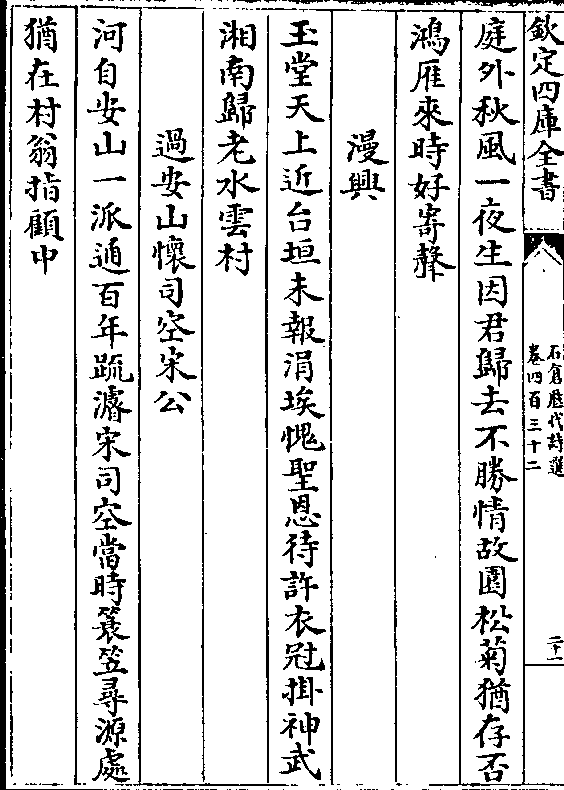 欽定四庫全書
石倉歷代詩選
卷四百三十二
二十一
庭外秋風一夜生因君歸去不勝情故園松菊猶存否
鴻雁來時好寄聲
漫興
玉堂天上近台垣未報涓埃愧聖恩待許衣冠掛神武
湘南歸老水雲村
過安山懷司空宋公
河自安山一派通百年疏濬宋司空當時簑笠尋源處
猶在村翁指顧中